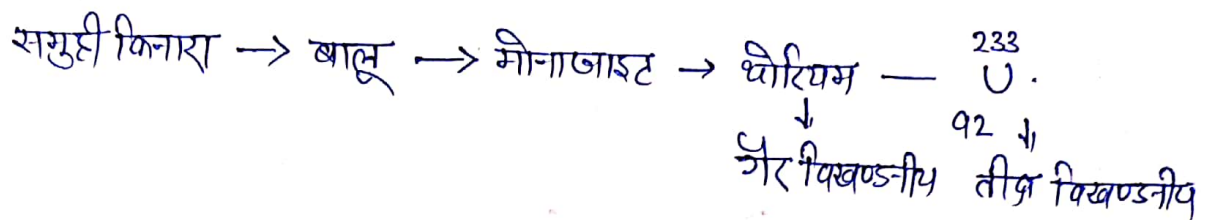 समुद्री किनारा → बालू → मोनाजाइट → थोरियम — 233 U .
↓ 92 ↓
गैर विखण्डनीय तीव्र विखण्डनीय